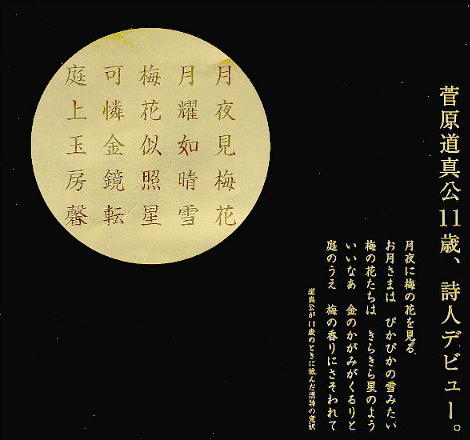 菅原道真公11歳、詩人デビュー。
月夜見梅花
月耀如晴雪
梅花似照星
可憐金鏡転
庭上玉房馨
月夜に梅の花を見る
お月さまは ぴかぴかの雪みたい
梅の花たちは きらきら星のよう
いいなあ 金のかがみがくるりと
庭のうえ 梅の香りにさそわれて
道真公が11歳のときに詠んだ漢詩の意訳